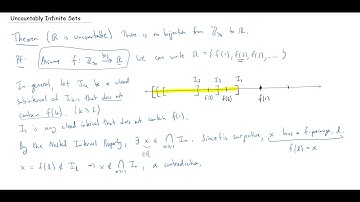 Uncountably Infinite Sets
Theorem (ℝ is uncountable) There is no bijection from ℤ>0 to ℝ.
Pf: Assume f: ℤ>0 → ℝ we can write ℝ = { f(1), f(2), f(3), ... }
In general, let Ik be a closed
subinterval of Ik-1 that does not
contain f(k). (k≥2)
I3 I2 I1
f(3) f(2) f(1)
I1 is any closed interval that does not contain f(1).
By the Nested Interval Property, ∃ x ∈ ⋂ In. Since f is surjective, x has a f-preimage, l.
n≥1
∈ℝ
f(l) = x
x = f(l) ∉ Il → x ∉ ⋂ In, a contradiction.
n≥1